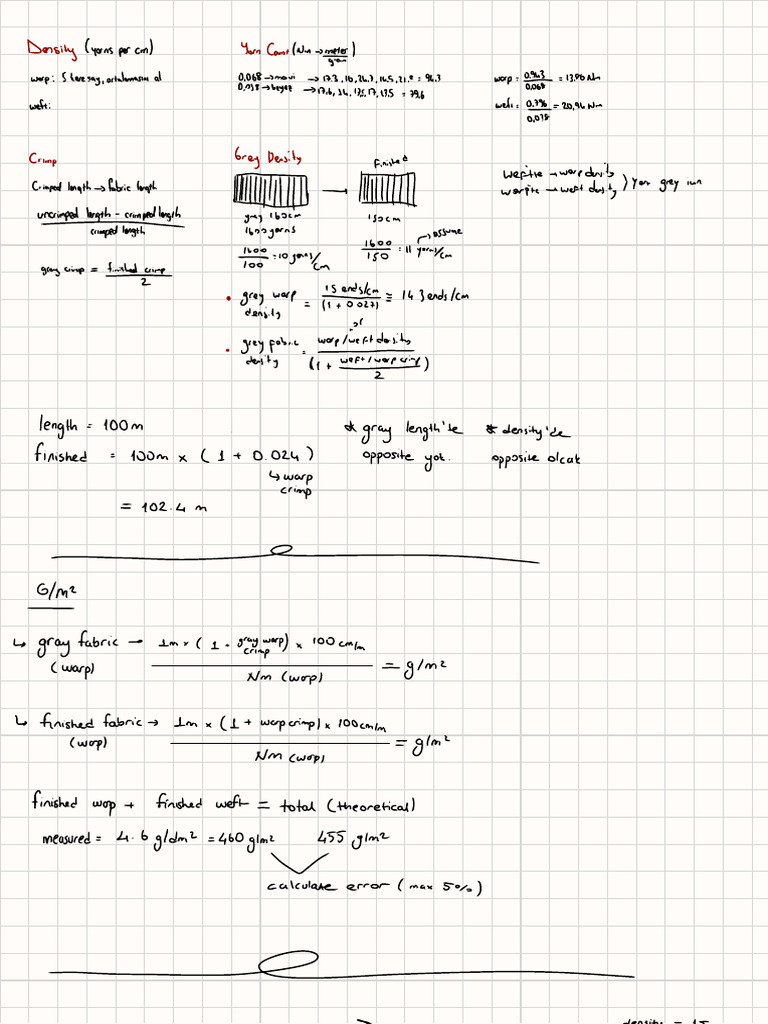 Density (yarns per cm)
warp: 5 kere say, ortalamasını al
weft:
Yarn Count (Nm → meter/gram)
0,068 → mavi → 17.3, 16, 24.3, 14.5, 21.2 = 94.3
0,038 → beyaz → 17.6, 14, 17.5, 17, 13.5 = 79.6
warp = 0.943/0.068 = 13,86 Nm
weft = 0.796/0.038 = 20,94 Nm
Crimp
Crimped length → fabric length
uncrimped length - crimped length
crimped length
gray crimp = finished crimp
2
Grey Density
finished
grey 160cm
1600 yarns
150cm
1600/100 = 10 yarns/cm
1600/150 = 11 yarns/cm → assume
weftte → warp density
warpte → weft density
grey warp density = 15 ends/cm / (1 + 0.027) ≅ 14.3 ends/cm
or
grey fabric density = warp/weft density / (1 + weft/warp crimp / 2)
length = 100m
finished = 100m × (1 + 0.024)
↳ warp crimp
= 102.4 m
* gray length'te
opposite yok.
* density'de
opposite olcak
G/m²
↳ gray fabric → 1m × (1 + gray warp crimp) × 100 cm/m
(warp) Nm (warp) = g/m²
↳ finished fabric → 1m × (1 + warp crimp) × 100 cm/m
(warp) Nm (warp) = g/m²
finished warp + finished weft = total (theoretical)
measured = 4.6 g/dm² = 460 g/m² 455 g/m²
calculate error (max 5%)